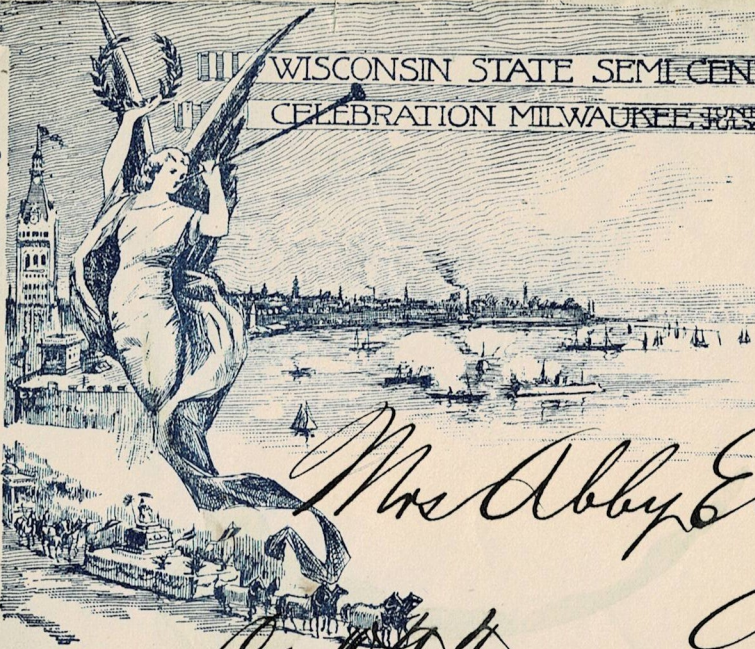 WISCONSIN STATE SEMI-CEN
CELEBRATION MILWAUKEE
Mrs Abby E